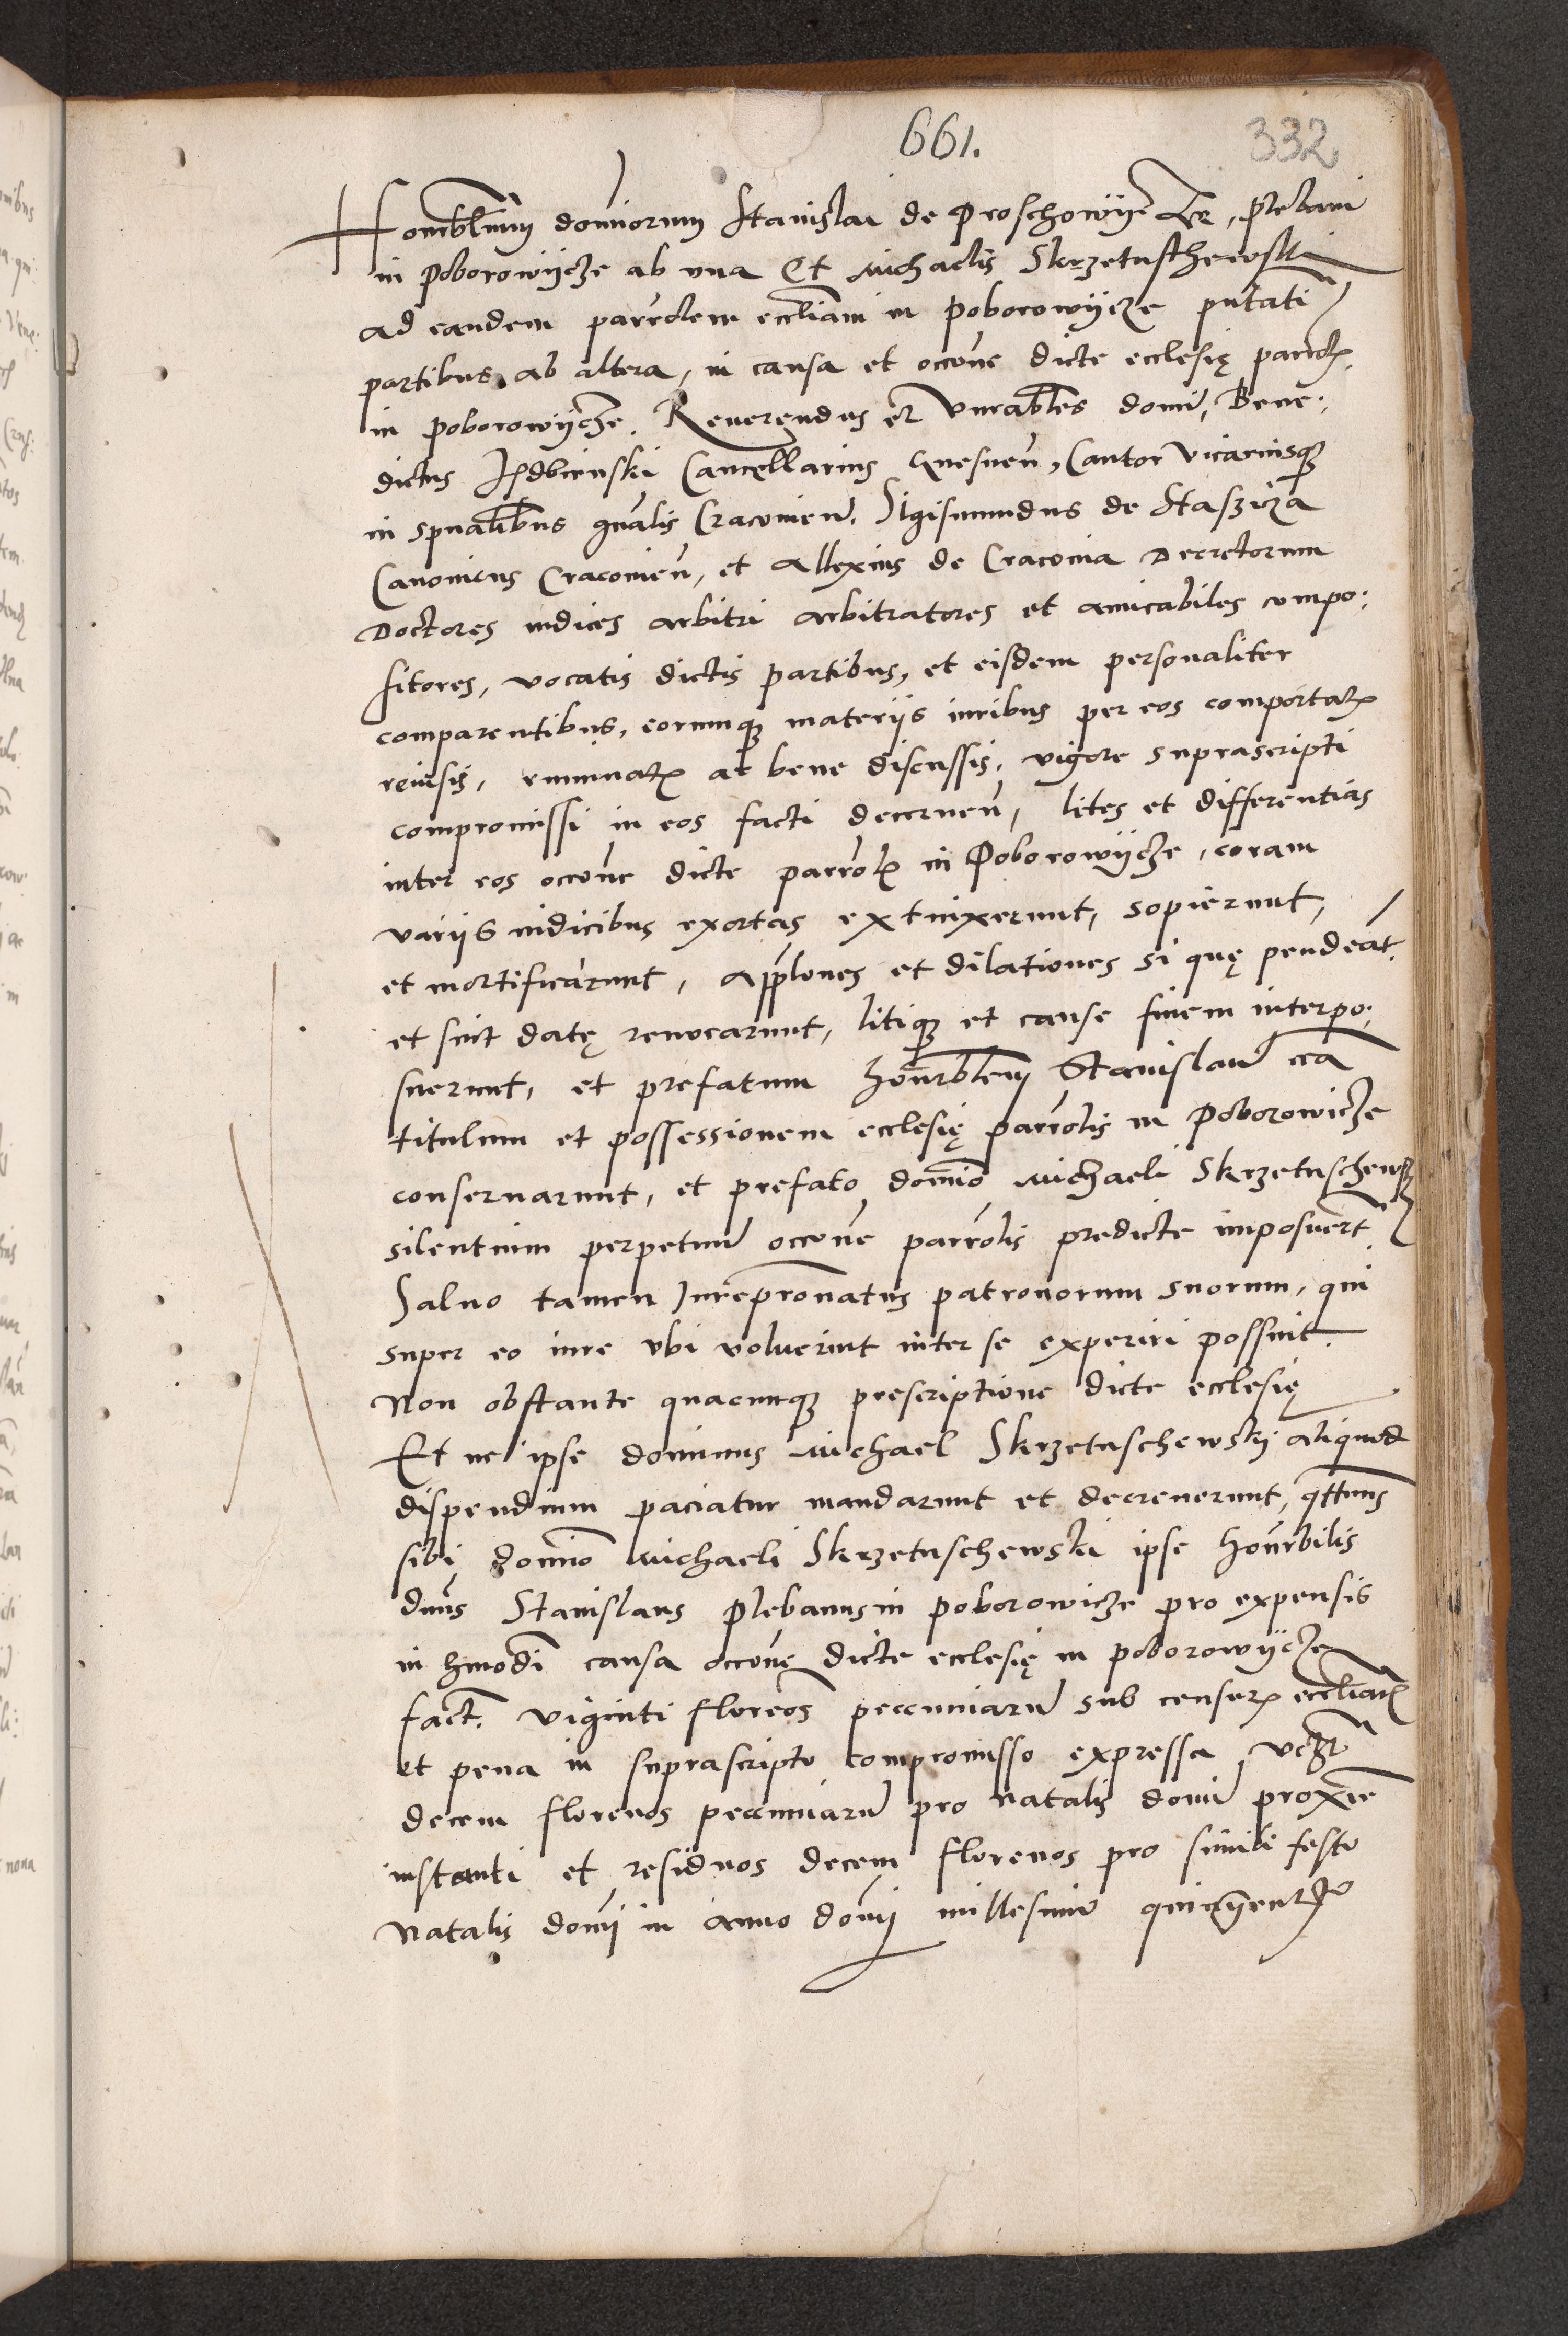 661.
332
Honorblium dominorum Stanislai de Proschowÿcze, plebani
in Poborowÿcze ab vna Et Michaelis Skrzetuschewski
ad eandem parrolem eccliam in poborowÿcze pntati
partibus ab altera, in causa et occone dicte ecclesię parrol.
in poborowÿcze. Reuerendus et Vnrabiles domi, Bene:
dictus Isdbienski Cancellarius Gnesnen, Cantor Vicariusq
in spualibus gnalis Cracouien. Sigismundus de Staszicza
Canonicus Cracouien, et Allexius de Cracouia Decretorum
Doctores iudices arbitri arbitratores et amicabiles compo:
sitores, vocatis dictis partibus, et eisdem personaliter
comparentibus, eorumq materijs iuribus per eos comportat
reuisis, ruminat ac bene discussis, vigore suprascripti
compromissi in eos facti decreuen, lites et differentias
inter eos occone dicte parrol in Poborowÿcze, coram
varijs iudicibus exortas extinxerunt, sopierunt,
et mortificarunt, applones et dilationes si quę pendeat.
et sint datę reuocarunt, litiq et cause finem interpo:
suerunt, et prefatum honorblem Stanislau cca
titulum et possessionem ecclesię parrolis in Poborowicze
conseruarunt, et prefato domino Michaeli Skrzetuschewski
silentium perpetuu occone parrolis predicte imposuert
Saluo tamen Iurepronatus patronorum suorum, qui
super eo iure vbi voluerint inter se experiri possint.
Non obstante quacunq prescriptione dicte ecclesię
Et ne ipse dominus Michael Skrzetuschewskj aliquod
dispendium paciatur mandarunt et decreuerunt, qttmus
sibi domino Michaeli Skrzetuschewski ipse honorbilis
dnus Stanislaus Plebanus in poborowicze pro expensis
in hmodi causa occone dicte ecclesię in poborowÿcze
fact. viginti florenos peccuniaru sub censur eccliat
et pena in suprascripto compromisso expressa vczt
decem florenos peccuniaru pro natalis domi proxie
instanti et residuos decem florenos pro simili festo
Natalis domi in anno domi millesimo quingent